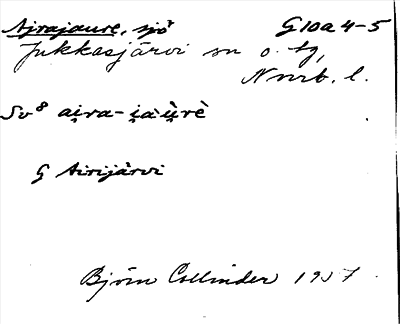 Ajrajaure, sjö G10a4-5
Jukkasjärvi sn o. tg,
Nnrb. l.
Sv⁸ ai̯ra-i̯àu̯rè
G Airijärvi
Björn Collinder 1957